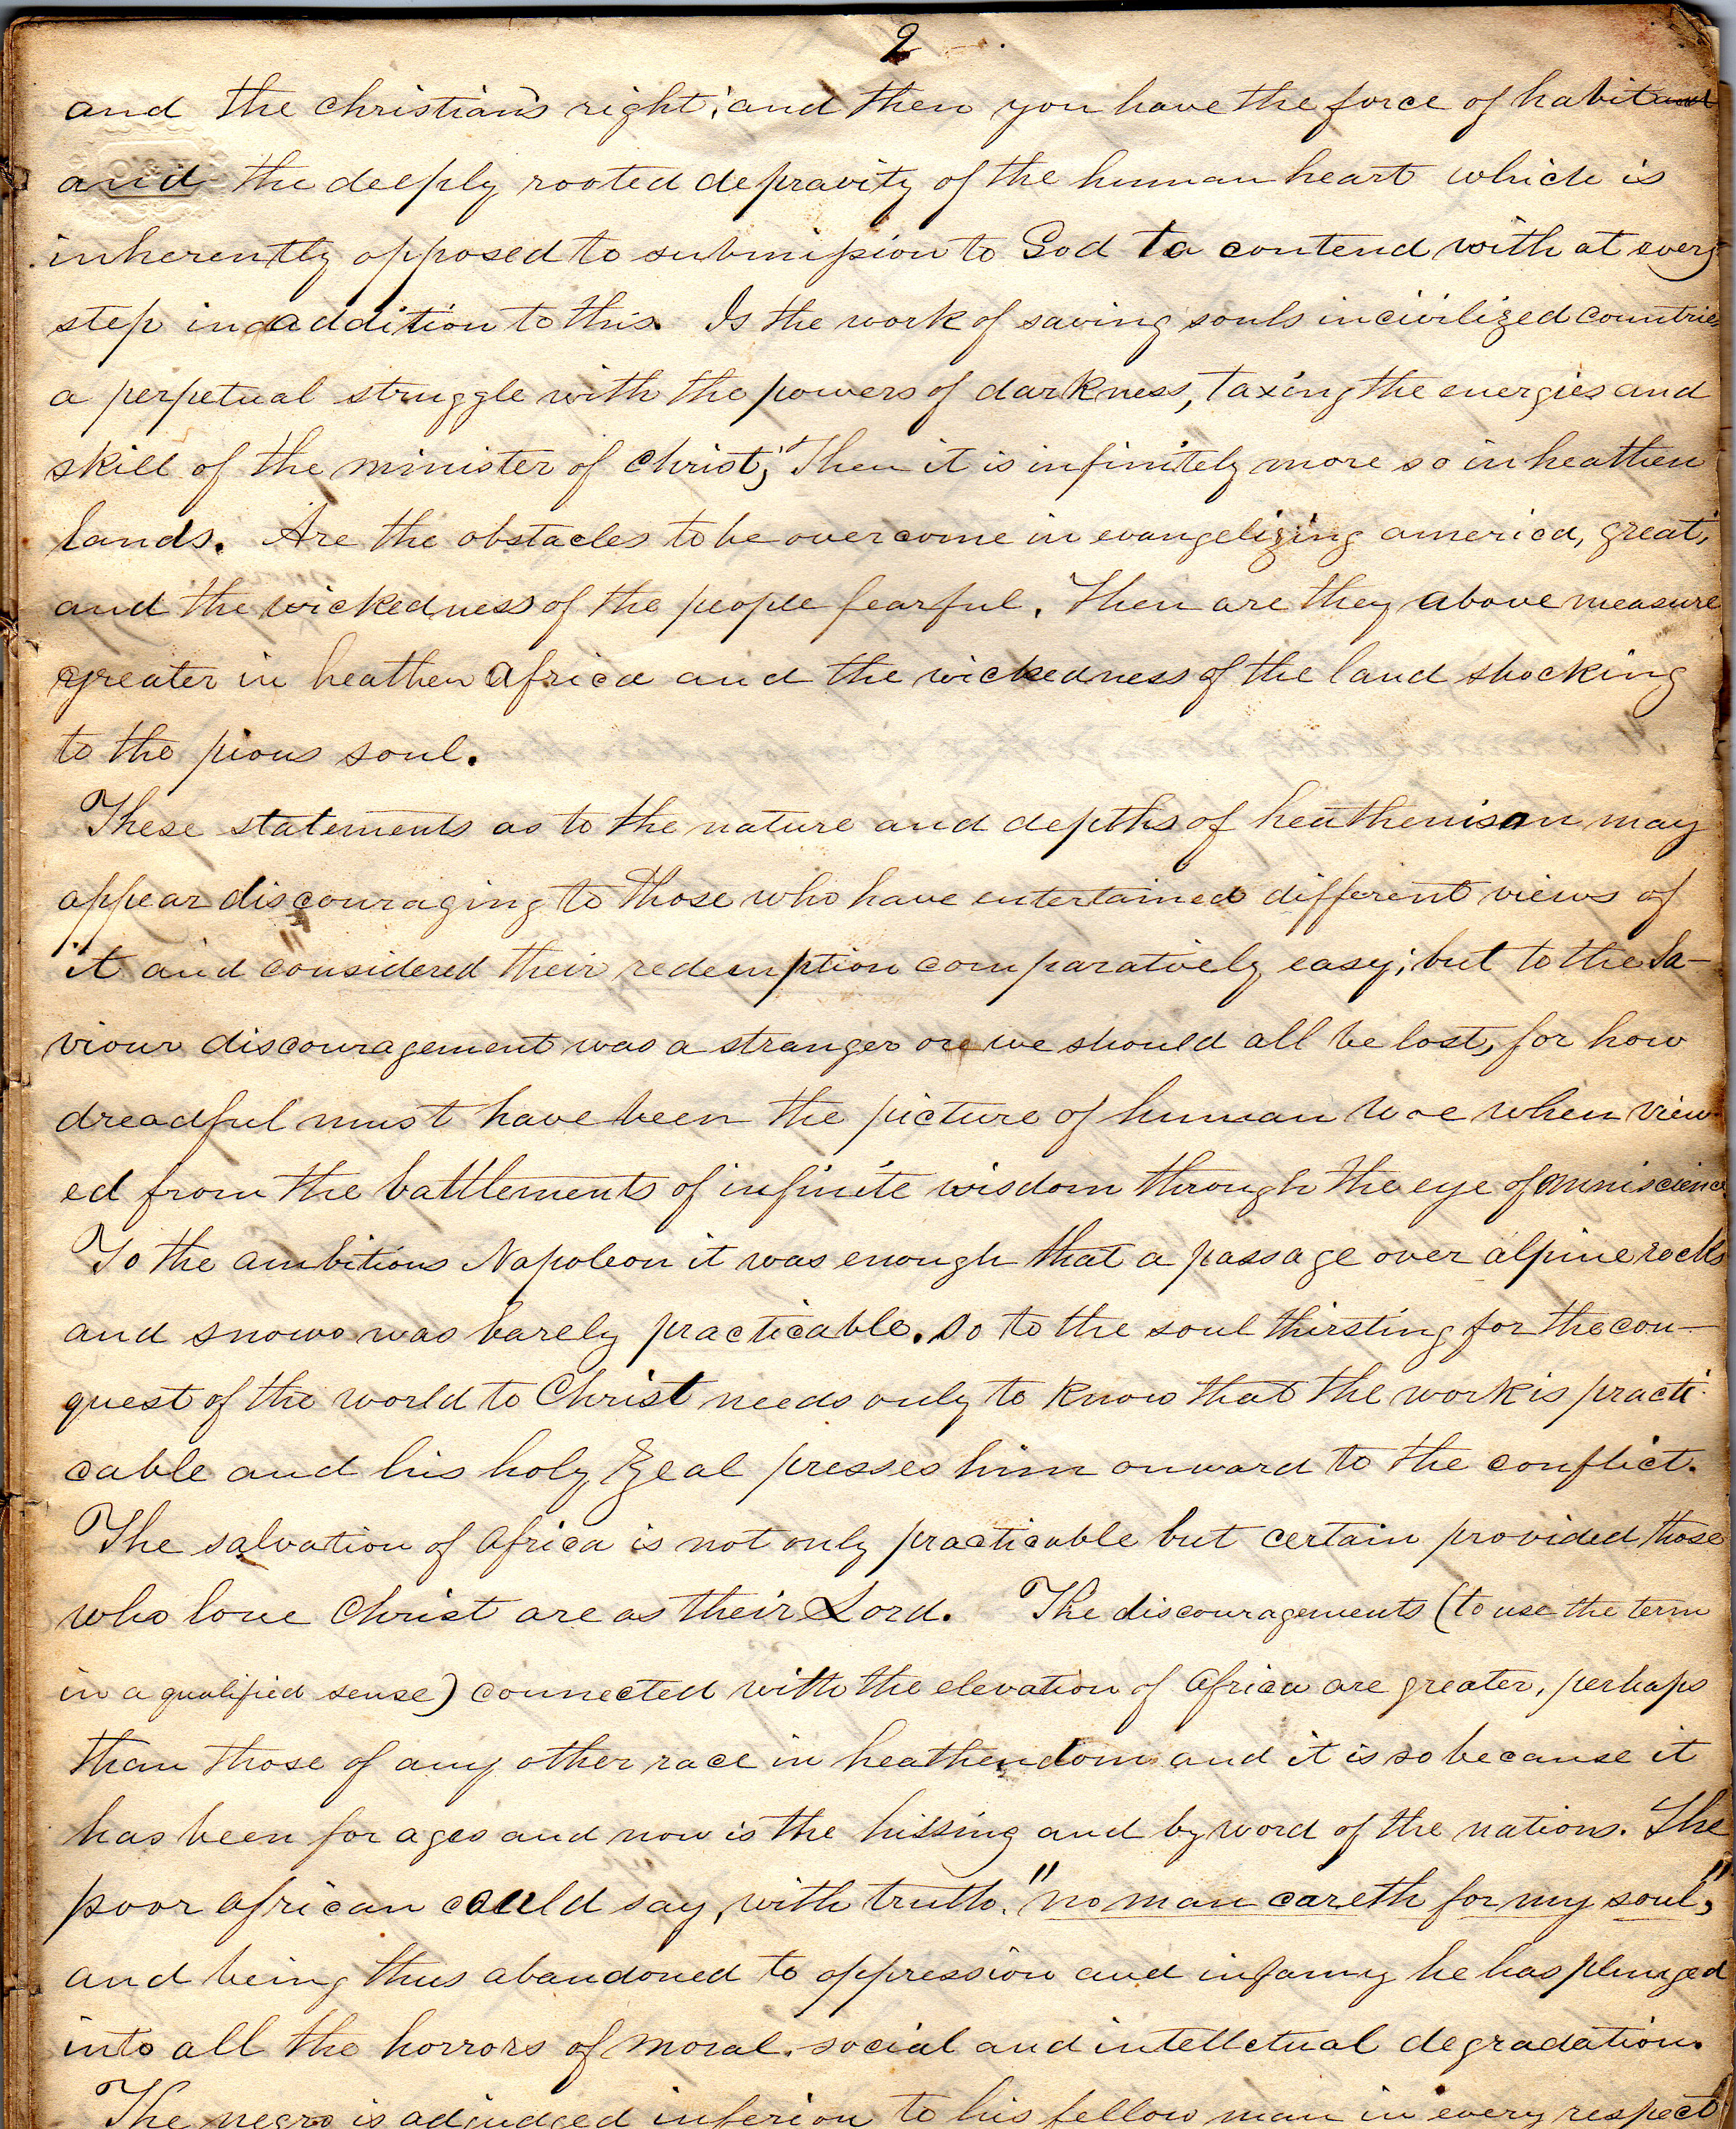 2
and the christian's right; and then you have the force of habit
and the deeply rooted depravity of the human heart which is
inherently opposed to submission to God to contend with at every
step in addition to this. Is the work of saving souls in civilized countries
a perpetual struggle with the powers of darkness, taxing the energies and
skill of the minister of Christ; Then it is infinitely more so in heathen
lands. Are the obstacles to be overcome in evangelizing america, great,
and the wickedness of the people fearful. Then are they above measure
greater in heathen Africa and the wickedness of the land shocking
to the pious soul.
These statements as to the nature and depths of heathenism may
appear discouraging to those who have entertained different views of
it and considered their redemption comparatively easy; but to the Sa-
viour discouragement was a stranger or we should all be lost, for how
dreadful must have been the picture of human woe when view-
ed from the battlements of infinite wisdom through the eye of omniscience
To the ambitious Napoleon it was enough that a passage over alpine rocks
and snows was barely practicable. So to the soul thirsting for the con-
quest of the world to Christ needs only to know that the work is practi-
cable and his holy zeal presses him onward to the conflict.
The salvation of Africa is not only practicable but certain provided those
who love Christ are as their Lord. The discouragements (to use the term
in a qualified sense) connected with the elevation of Africa are greater, perhaps
than those of any other race in heathendom and it is so because it
has been for ages and now is the hissing and by word of the nations. The
poor african could say, with truth, "no man careth for my soul,"
and being thus abandoned to oppression and infamy he has plunged
into all the horrors of moral. social and intelletual degradation.
The negro is adjudged inferior to his fellow man in every respect